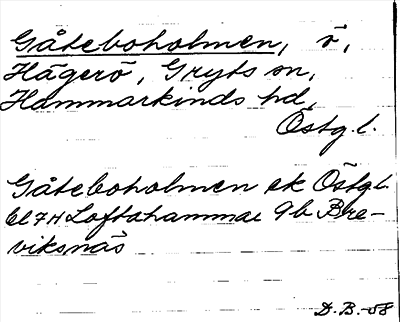 Gåteboholmen, ö,
Hägerö, Gryts sn,
Hammarkinds hd,
Östg. l.
Gåteboholmen ek Östgl.
bl 7H Loftahammar 9b Bre-
viksnäs
D.B.-58